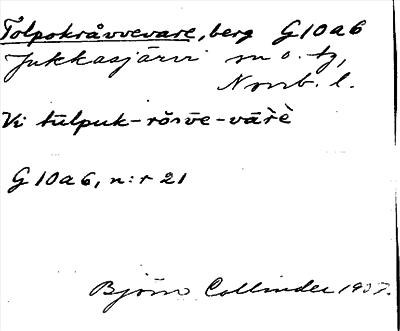 Tolpokråvvevare, berg G10a6
Jukkasjärvi sn o. tg,
Norrb. l.
Vi tŭlpuk-rŏsve-vārè
G10a6, n:r 21
Björn Collinder 1937.